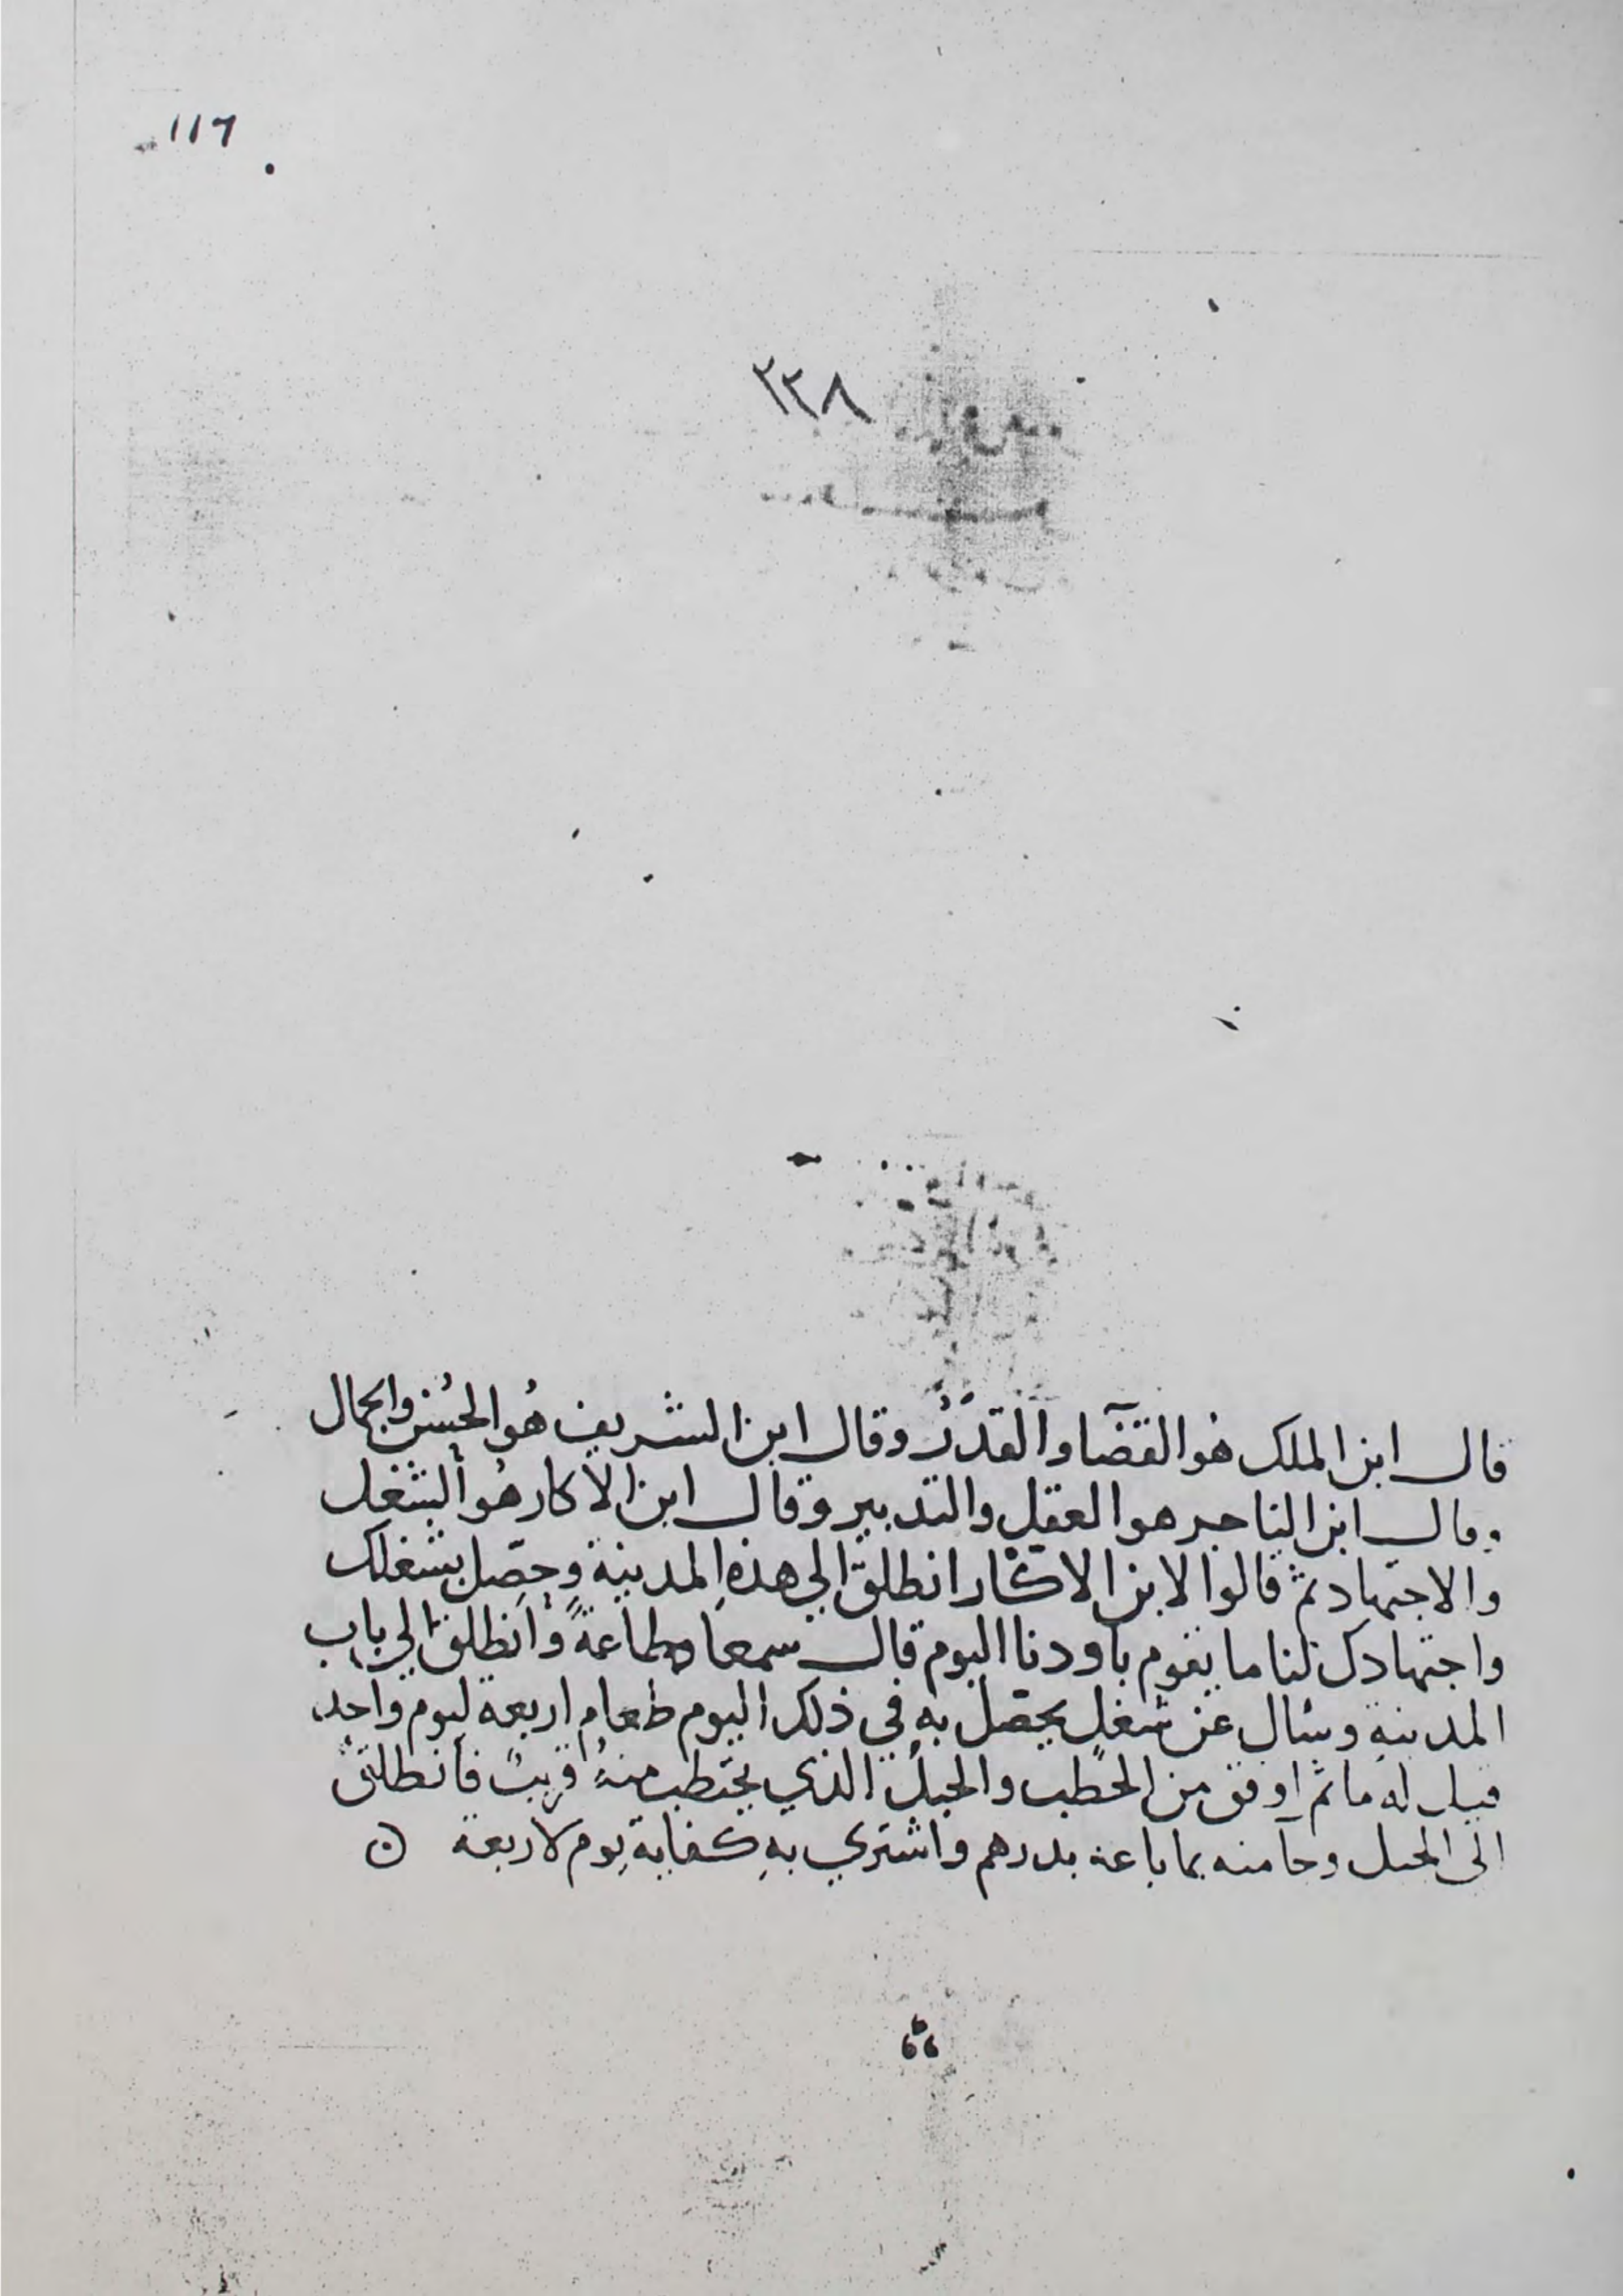 ١١٦
٢٣٨
قال ابن الملك هو القضآ والقدر وقال ابن الشريف هُو الحُسن والجمال
وقال ابن التاجر هو العقل والتدبير وقال ابن الاكار هُو الشغل
والاجتهاد ثم قالوا لابن الاكار انطلق الي هذهِ المدينة وحصّل بشغلك
واجتهادك لنا ما يقوم باودنا اليوم قال سمعا وطاعةً وانطلق الي باب
المدينةِ وسال عن شغلٍ يحصّل بهِ في ذلك اليوم طعام اربعة ليوم واحدٍ
قيل له ما ثم اوفق من الحطب والجبلُ الذي يحتطب منهُ قريبٌ فانطلق
الى الجبل وجا منه بما باعه بدرهم واشتري بهِ كفاية يوم لاربعة ٥